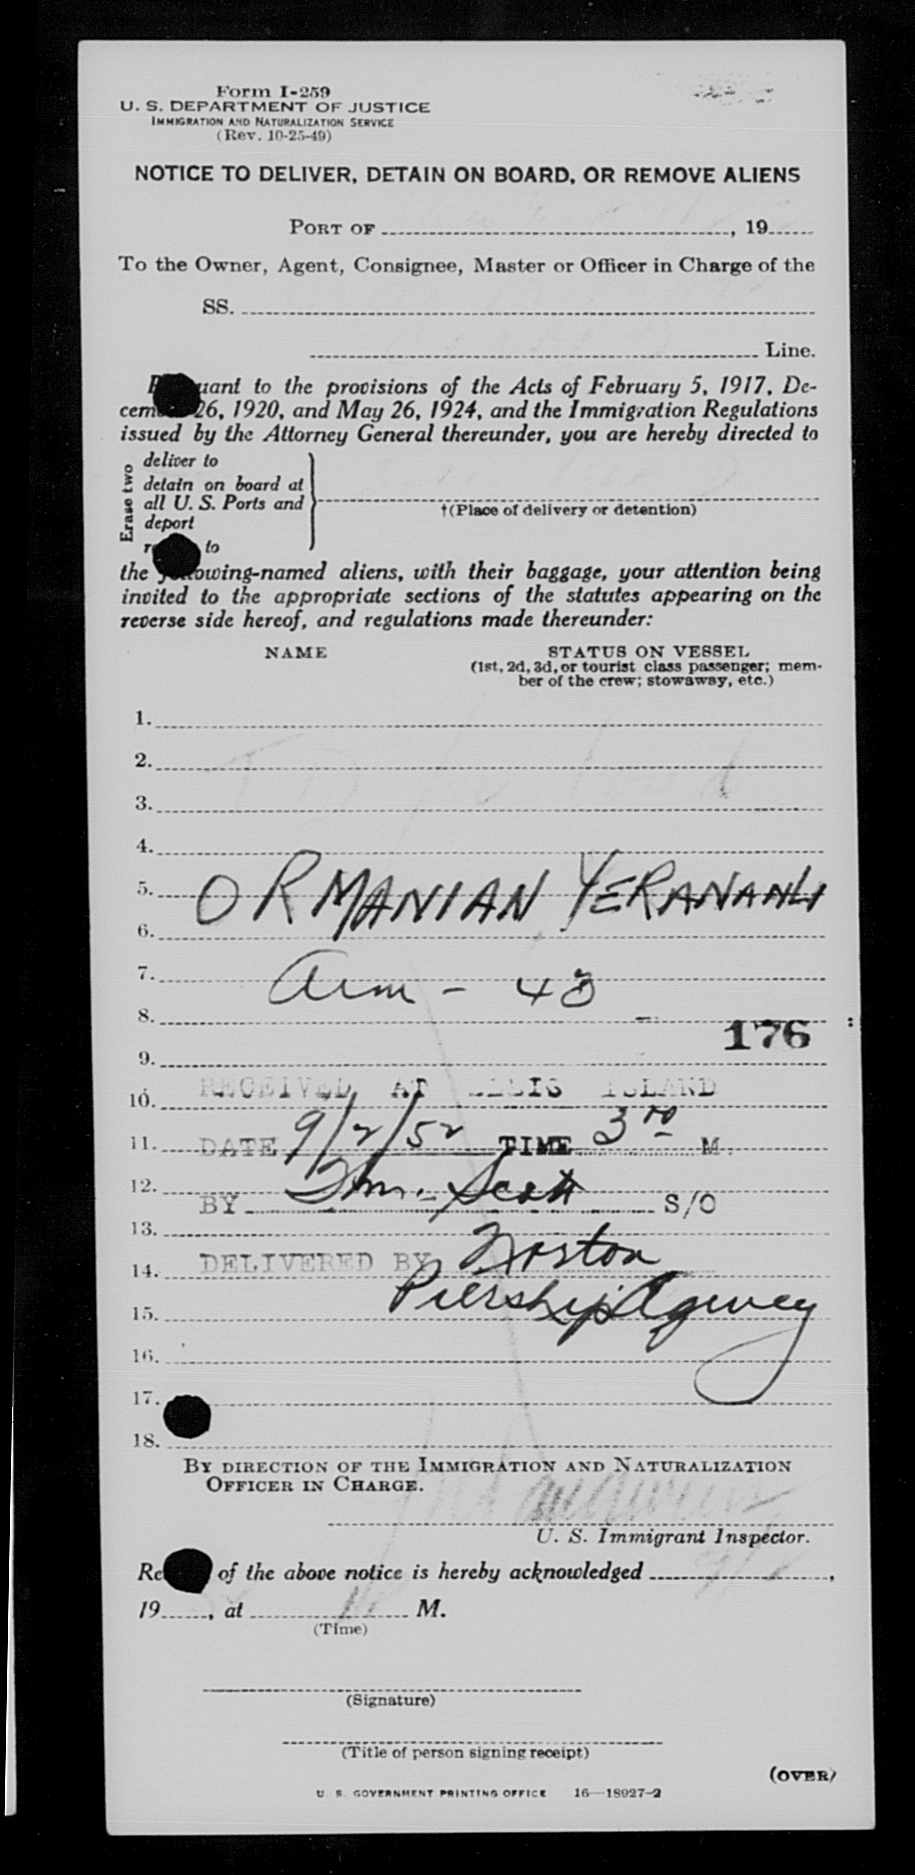 Form I-259
U. S. DEPARTMENT OF JUSTICE
IMMIGRATION AND NATURALIZATION SERVICE
(Rev. 10-25-49)
NOTICE TO DELIVER, DETAIN ON BOARD, OR REMOVE ALIENS
PORT OF , 19
To the Owner, Agent, Consignee, Master or Officer in Charge of the
SS.
Line.
uant to the provisions of the Acts of February 5, 1917, De-
cem 26, 1920, and May 26, 1924, and the Immigration Regulations
issued by the Attorney General thereunder, you are hereby directed to
Erase two
deliver to
detain on board at
all U. S. Ports and
deport
to
†(Place of delivery or detention)
the owing-named aliens, with their baggage, your attention being
invited to the appropriate sections of the statutes appearing on the
reverse side hereof, and regulations made thereunder:
NAME STATUS ON VESSEL
(1st, 2d, 3d, or tourist class passenger; mem-
ber of the crew; stowaway, etc.)
1.
2.
3.
4.
5. ORMANIAN YERANAHLI
6.
7. Arm - 43
8.
176
9.
RECEIVED AT ELLIS ISLAND
10.
11. DATE 9/2/52 TIME 3 10 M.
12.
BY Wm. Scott S/O
13.
DELIVERED BY Norton
14.
Piership Agency
15.
16.
17.
18.
BY DIRECTION OF THE IMMIGRATION AND NATURALIZATION
OFFICER IN CHARGE.
U. S. Immigrant Inspector.
Re of the above notice is hereby acknowledged ,
19 , at M.
(Time)
(Signature)
(Title of person signing receipt)
(OVER)
U. S. GOVERNMENT PRINTING OFFICE 16—18927-2